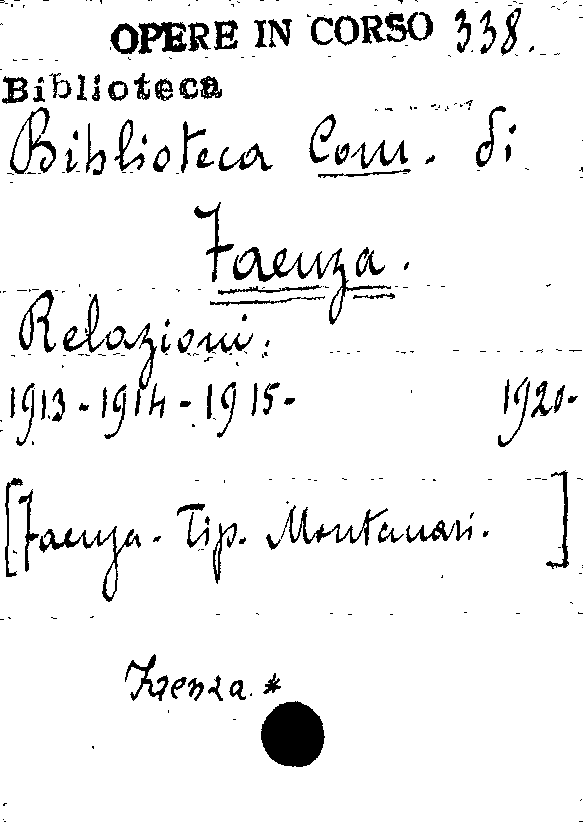 OPERE IN CORSO 338.
Biblioteca
Biblioteca Com. di
Faenza.
Relazioni.
1913-1914-1915- 1920-
[Faenza. Tip. Montanari. ]
Faenza *